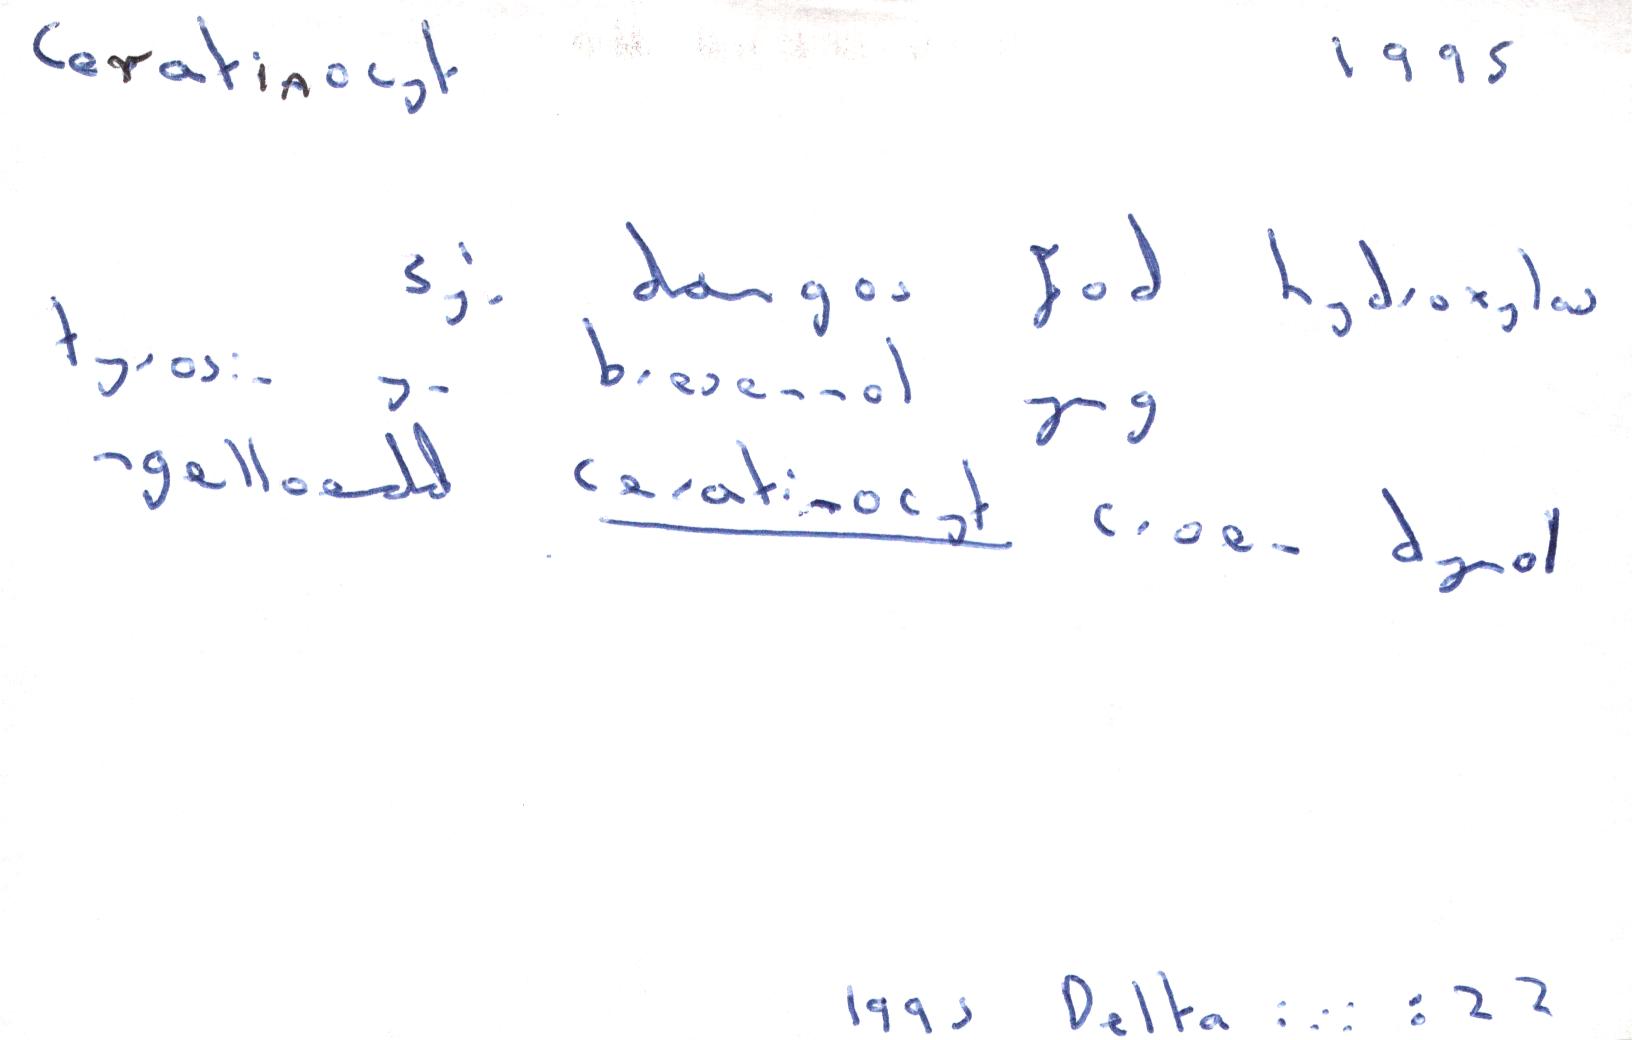 Ceratinocyt 1995
sy'n dangos fod hydroxylas
tyrosin yn bresennol yng
ngelloedd ceratinocyt croen dynol
1995 Delta iii :22